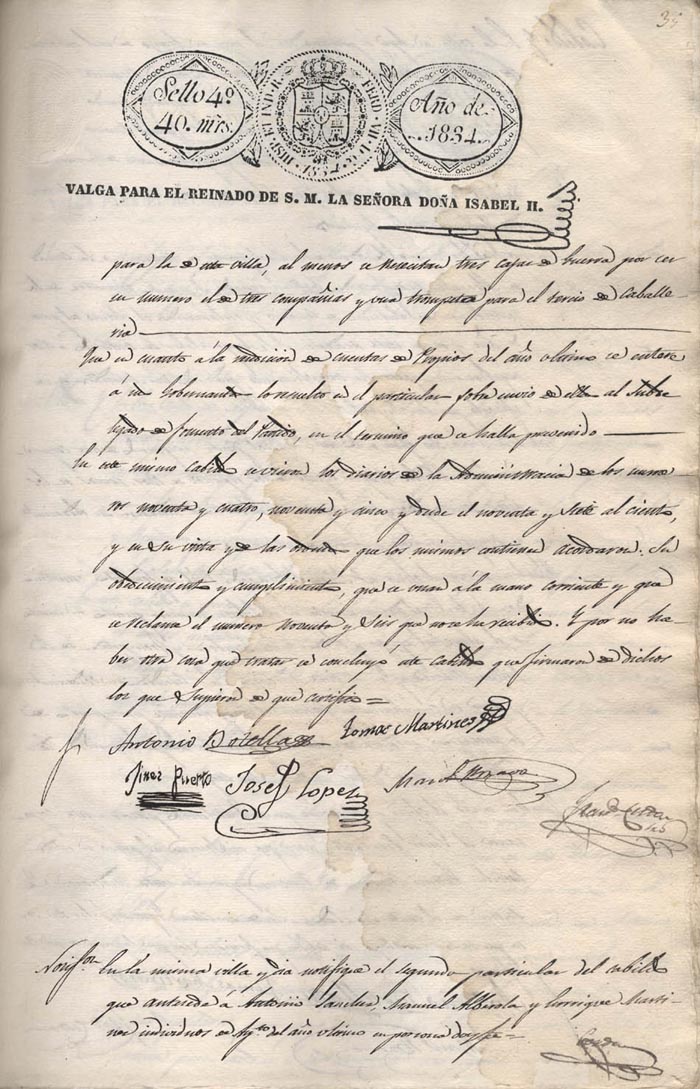 35
Sello 4º
40. mrs.
HISP. ET IND. R. FERD. VII. D. G.
1834
Año de
1834.
VALGA PARA EL REINADO DE S. M. LA SEÑORA DOÑA ISABEL II.
para la de esta villa, al menos se necesitan tres cajas de Guerra por ser
su numero el de tres compañias y una trompeta para el tercio de Caballe-
ria
Que en cuanto á la rendicion de cuentas de Propios del año ultimo se entere
á su lo resuelto en el particular sobre envio de ellas al Subde
legado de fomento del Partido, en el termino que se halla prevenido
En este mismo Cabildo se vieron los diarios de la Administracion de los nume-
ros noventa y cuatro, noventa y cinco y desde el noventa y siete al ciento,
y en su vista y de las ordenes que los mismos contienen acordaron: Su
obedecimiento y cumplimiento, que se unan á la mano corriente y que
se reclame el numero noventa y seis que no se ha recibido. Y por no ha-
ber otra cosa que tratar se concluyó este Cabildo que firmaron de dichos
los que supieron de que certifico =
Antonio Botella Tomas Martinez
Jinez Puerto Josef Lopez
Notifon En la misma villa y dia notifique el segundo particular del cabildo
que antecede á Antonio Sanchez, Manuel Albirola y Enrique Marti-
nez individuos en Ayto del año ultimo en persona doy fe =